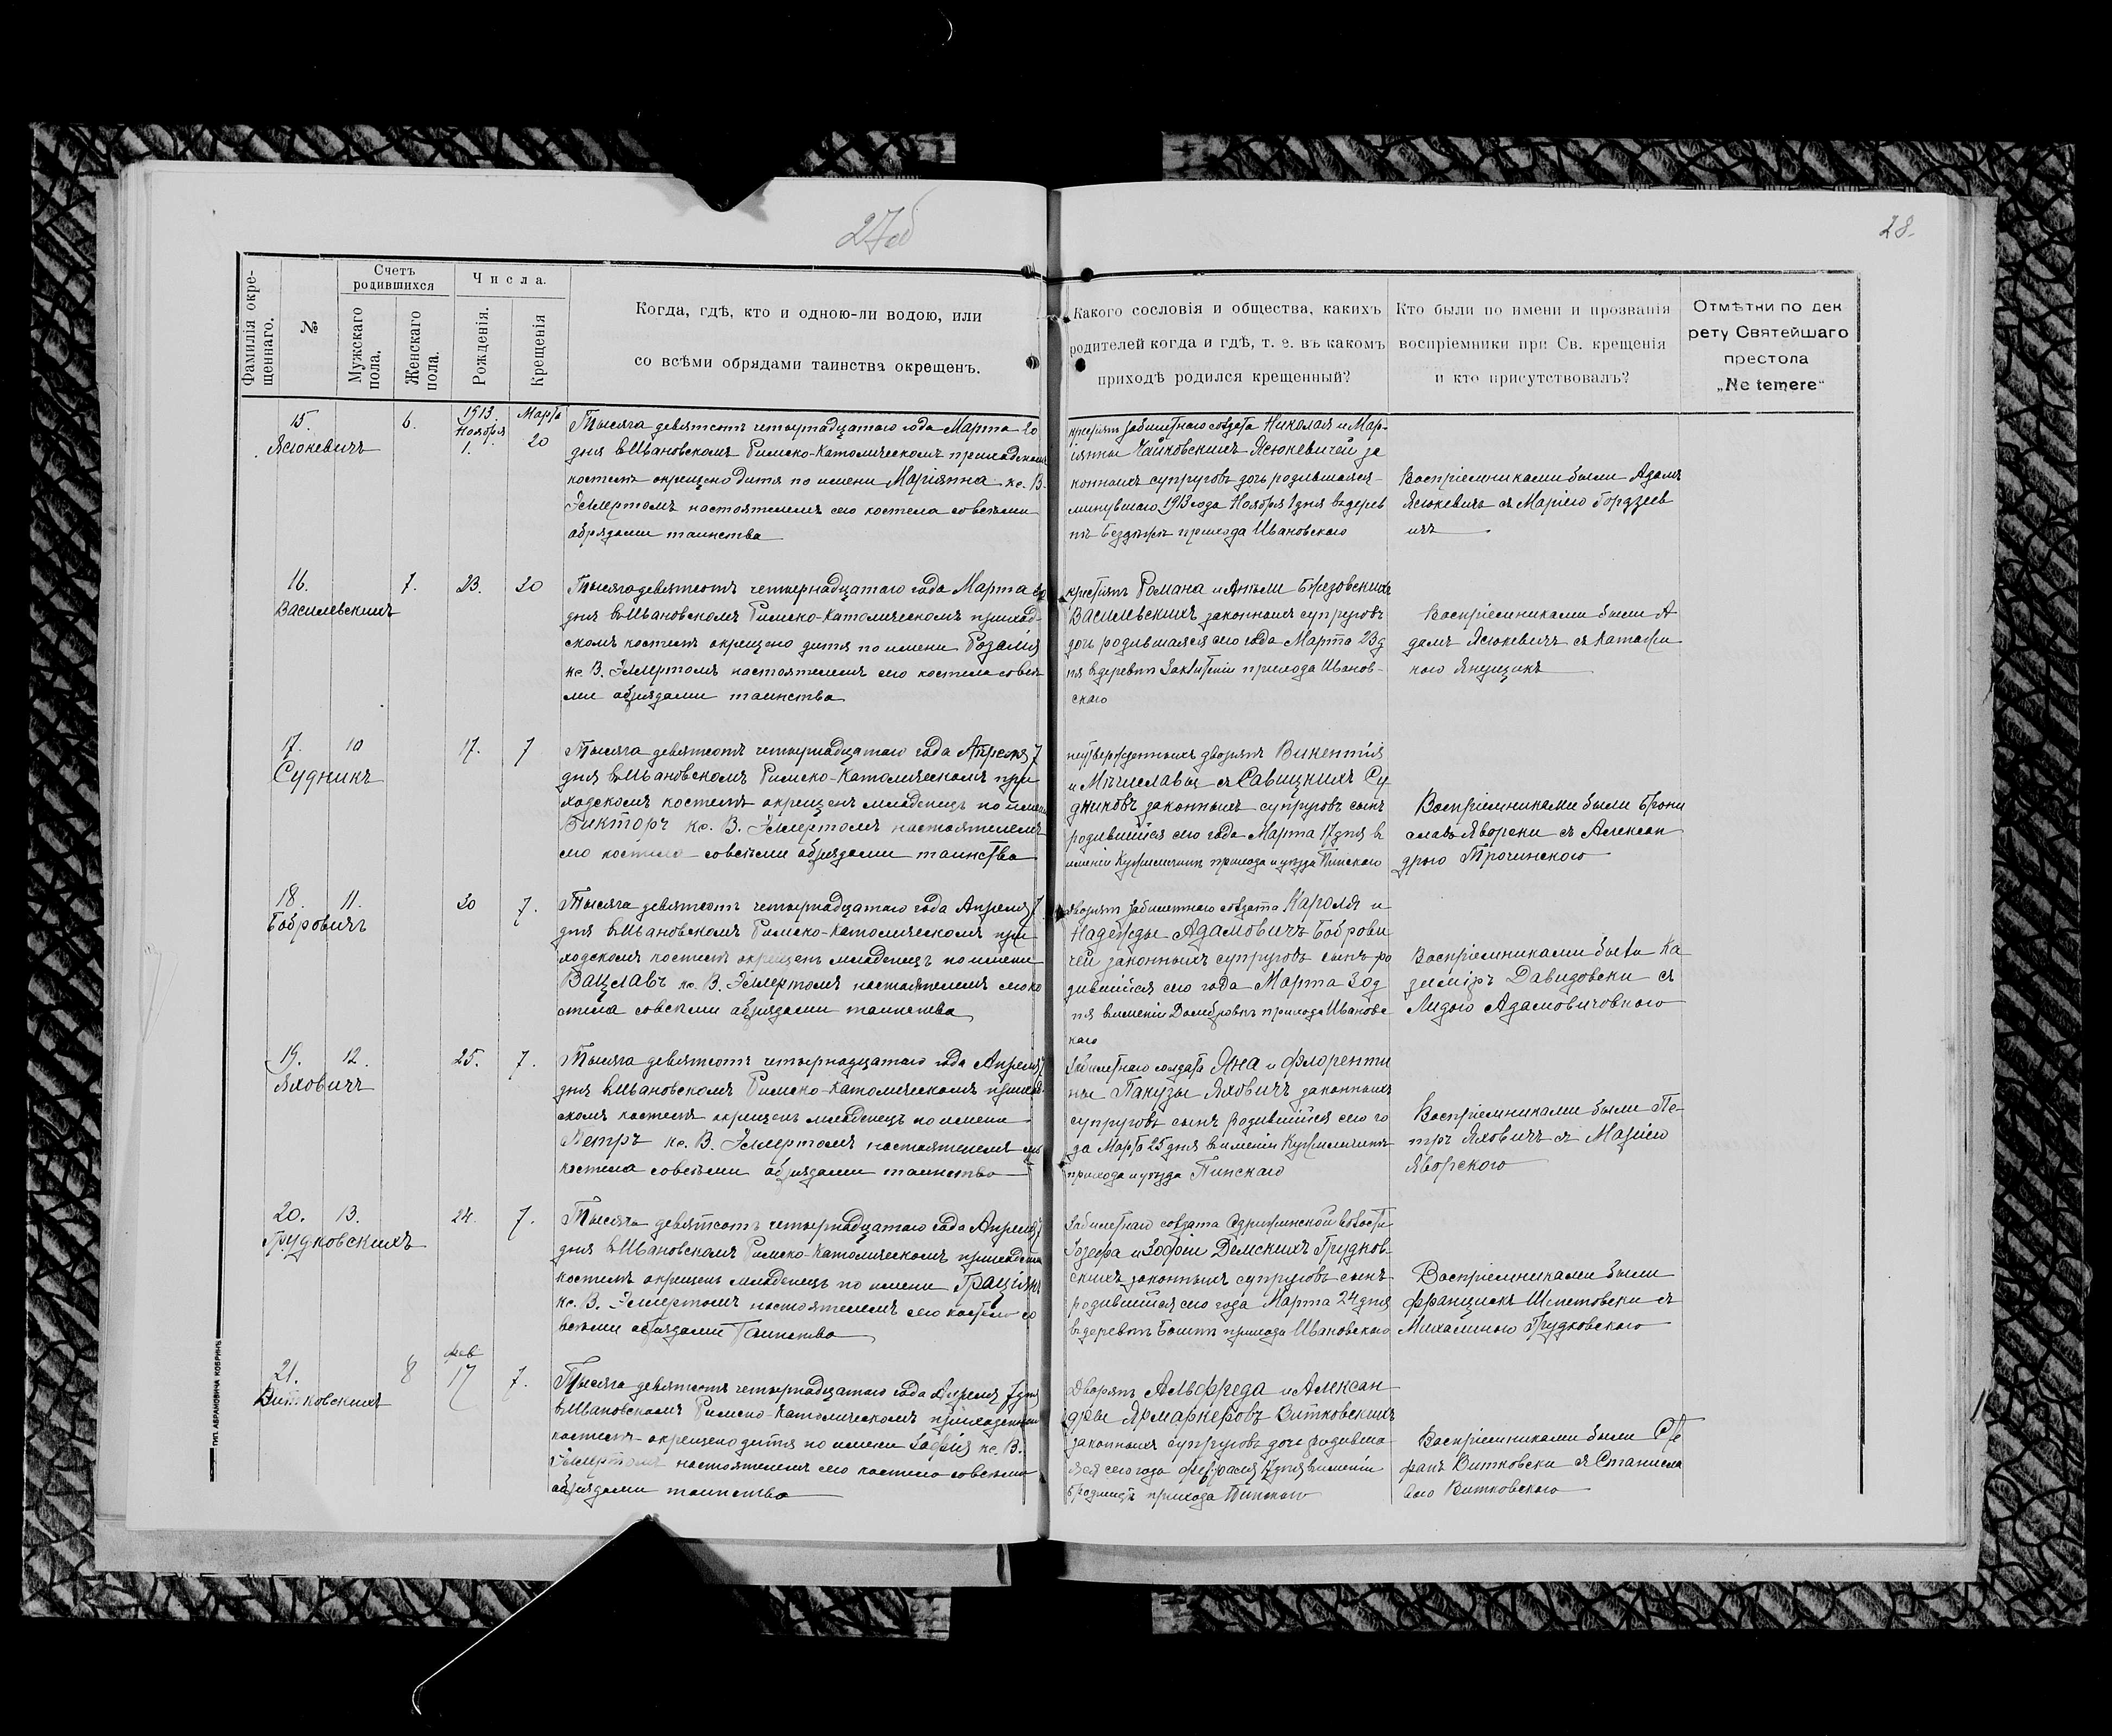 27об
28.
Фамилія окре-
щеннаго.
№
Счетъ
родившихся
Мужскаго
пола.
Женскаго
пола.
Числа.
Рожденія.
Крещенія
Когда, гдѣ, кто и одною-ли водою, или
со всѣми обрядами таинства окрещенъ.
Какого сословія и общества, какихъ
родителей когда и гдѣ, т. е. въ какомъ
приходѣ родился крещенный?
Кто были по имени и прозванія
воспріемники при Св. крещенія
и кто присутствовалъ?
Отмѣтки по дек
рету Святейшаго
престола
„Ne temere“
15.
Ясюкевичъ
6.
1913.
Ноября
1.
Марта
20
Тысяча девятсотъ четырнадцатаго года Марта 20
дня въ Ивановскомъ Римско-Католическомъ приходскомъ
костелѣ окрещено дитя по имени Маріянна кс. В.
Эллертомъ настоятелемъ сего костела совсѣми
обрядами таинства
крестьян запистнаго солдата Николая и Мар-
іянны Чайковскихъ Ясюкевичей за
конныхъ супруговъ дочь родившаяся
минувшаго 1913 года Ноября 1 дня въ дерев
нѣ Бездѣжъ прихода Ивановскаго
Воспріемниками были Адамъ
Ясюкевичъ съ Маріею Гордзеев
ичъ
16.
Василевскихъ
7.
23.
20
Тысяча девятсотъ четырнадцатаго года Марта 20
дня въ Ивановскомъ Римско-Католическомъ приход-
скомъ костелѣ окрещено дитя по имени Розалія
кс. В. Эллертомъ настоятелемъ сего костела совсѣ
ми обрядами таинства
крестьян Романа и Анѣли Брезовскихъ
Василевскихъ законныхъ супруговъ
дочь родившаяся сего года Марта 23 д
ня въ деревнѣ прихода Иванов-
скаго
Воспріемниками были А
дамъ Ясюкевичъ съ Катаржи
ною Янущикъ
17.
10
Судникъ
17.
7
Тысяча девятсотъ четырнадцатаго года Апреля 7
дня въ Ивановскомъ Римско-Католическомъ при
ходскомъ костелѣ окрещенъ младенецъ по имени
Викторъ кс. В. Эллертомъ настоятелемъ
сего костела совсѣми обрядами таинства
неутвержденныхъ дворянъ Викентія
и Мѣчиславы съ Савицкихъ Су
дниковъ законныхъ супруговъ сынъ
родившійся сего года Марта 17 дня в
имѣніи прихода и уѣзда Пинскаго
Воспріемниками были Брони
славъ Яворски съ Алексан
дрою Трочинскою
18.
11.
Бобровичъ
30
7.
Тысяча девятсотъ четырнадцатаго года Апреля 7
дня въ Ивановскомъ Римско-Католическомъ при
ходскомъ костелѣ окрещенъ младенецъ по имени
Вацлавъ кс. В. Эллертомъ настоятелемъ сего ко
стела совсѣми обрядами таинства
дворян запистнаго солдата Кароля и
Надежды Адамовичъ Боброви
чей законныхъ супруговъ сынъ ро
дившійся сего года Марта 30 д
ня въ имѣніи Домбровкѣ прихода Ивановс
каго
Воспріемниками были Ка
зимиръ Давидовски съ
Лидою Адамовичовною
19.
12.
Яховичъ
25.
7.
Тысяча девятсотъ четырнадцатаго года Апреля 7
дня въ Ивановскомъ Римско-Католическомъ приход-
скомъ костелѣ окрещенъ младенецъ по имени
Петръ кс. В. Эллертомъ настоятелемъ сего
костела совсѣми обрядами таинства
солдата Яна и Флоренти
ны Пакузы Яховичъ законныхъ
супруговъ сынъ родившійся сего го
да Марта 25 дня въ имѣніи
прихода и уѣзда Пинскаго
Воспріемниками были Пе-
тръ Яховичъ съ Маріею
Яворскою
20.
13.
Грудковскихъ
24.
7.
Тысяча девятсотъ четырнадцатаго года Апреля 7
дня въ Ивановскомъ Римско-Католическомъ приходскомъ
костелѣ окрещенъ младенецъ по имени Граціянъ
кс. В. Эллертомъ настоятелемъ сего костела со
всѣми обрядами таинства
солдата волости
Іозефа и Зофіи Демскихъ Грудков-
скихъ законныхъ супруговъ сынъ
родившійся сего года Марта 24 дня
въ деревнѣ прихода Ивановскаго
Воспріемниками были
Францискъ Шепетовски съ
Михалиною Грудковскою
21.
Витковскихъ
8
фев
17
7.
Тысяча девятсотъ четырнадцатаго года Апреля 7 дня
въ Ивановскомъ Римско-Католическомъ приходскомъ
костелѣ окрещено дитя по имени Зофія кс. В.
Эллертомъ настоятелемъ сего костела совсѣми
обрядами таинства
Дворянъ Альфреда и Алексан
дры Ярмаркеровъ Витковскихъ
законныхъ супруговъ дочь родивша
яся сего года февраля 17 дня въ имѣніи
прихода Пинскаго
Воспріемниками были Сте
фанъ Витковски съ Станисла
вою Витковскою
ТИП. АБРАМОВИЧА КОБРИНЪ